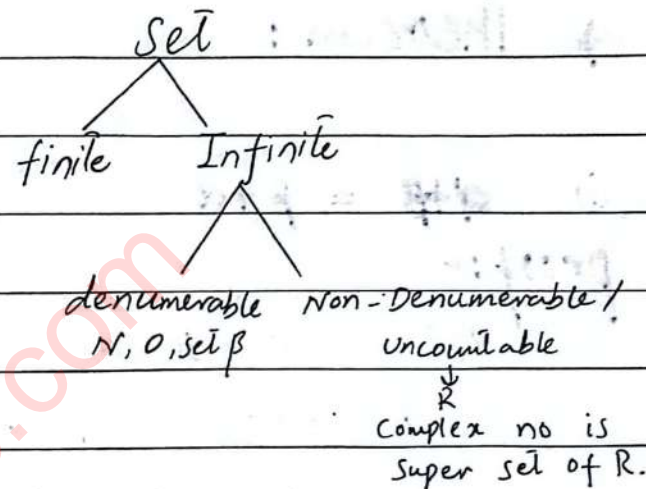 Set
finite Infinite
denumerable Non-Denumerable/
N, O, set β uncountable
R
Complex no is
Super set of R.
.com